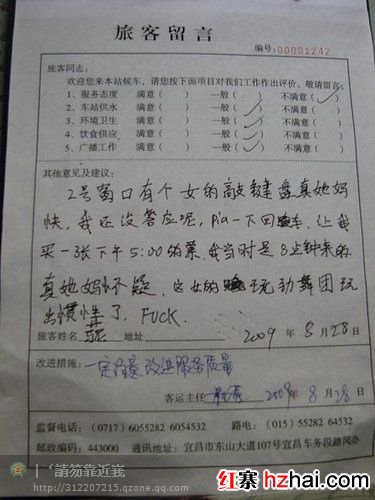 旅客留言
编号:00001242
旅客同志:
欢迎您来本站候车,请您按下面项目对我们工作作出评价,敬请留言。
1、服务态度 满意( ) 一般( ) 不满意(✓)
2、车站供水 满意( ) 一般(✓) 不满意( )
3、环境卫生 满意( ) 一般(✓) 不满意( )
4、饮食供应 满意( ) 一般(✓) 不满意( )
5、广播工作 满意( ) 一般(✓) 不满意( )
其他意见及建议:
2号窗口有个女的敲键盘真她妈
快,我还没答应呢,Pia一下回车,让我
买一张下午5:00的票,我当时是8点钟来的
真她妈怀疑,这女的玩劲舞团玩
出惯性了,FUCK.
旅客姓名 地址 2009 年 8 月 28 日
改进措施:
一定注意改进服务质量
客运主任 2009 年 8 月 28 日
监督电话:(0717) 6055282 6054532 路电:(015) 55282 64532
邮政编码:443000 通讯地址:宜昌市东山大道107号宜昌车务段路风办
請勿靠近
http://312207215.qzone.qq.com
红寨hzhai.com